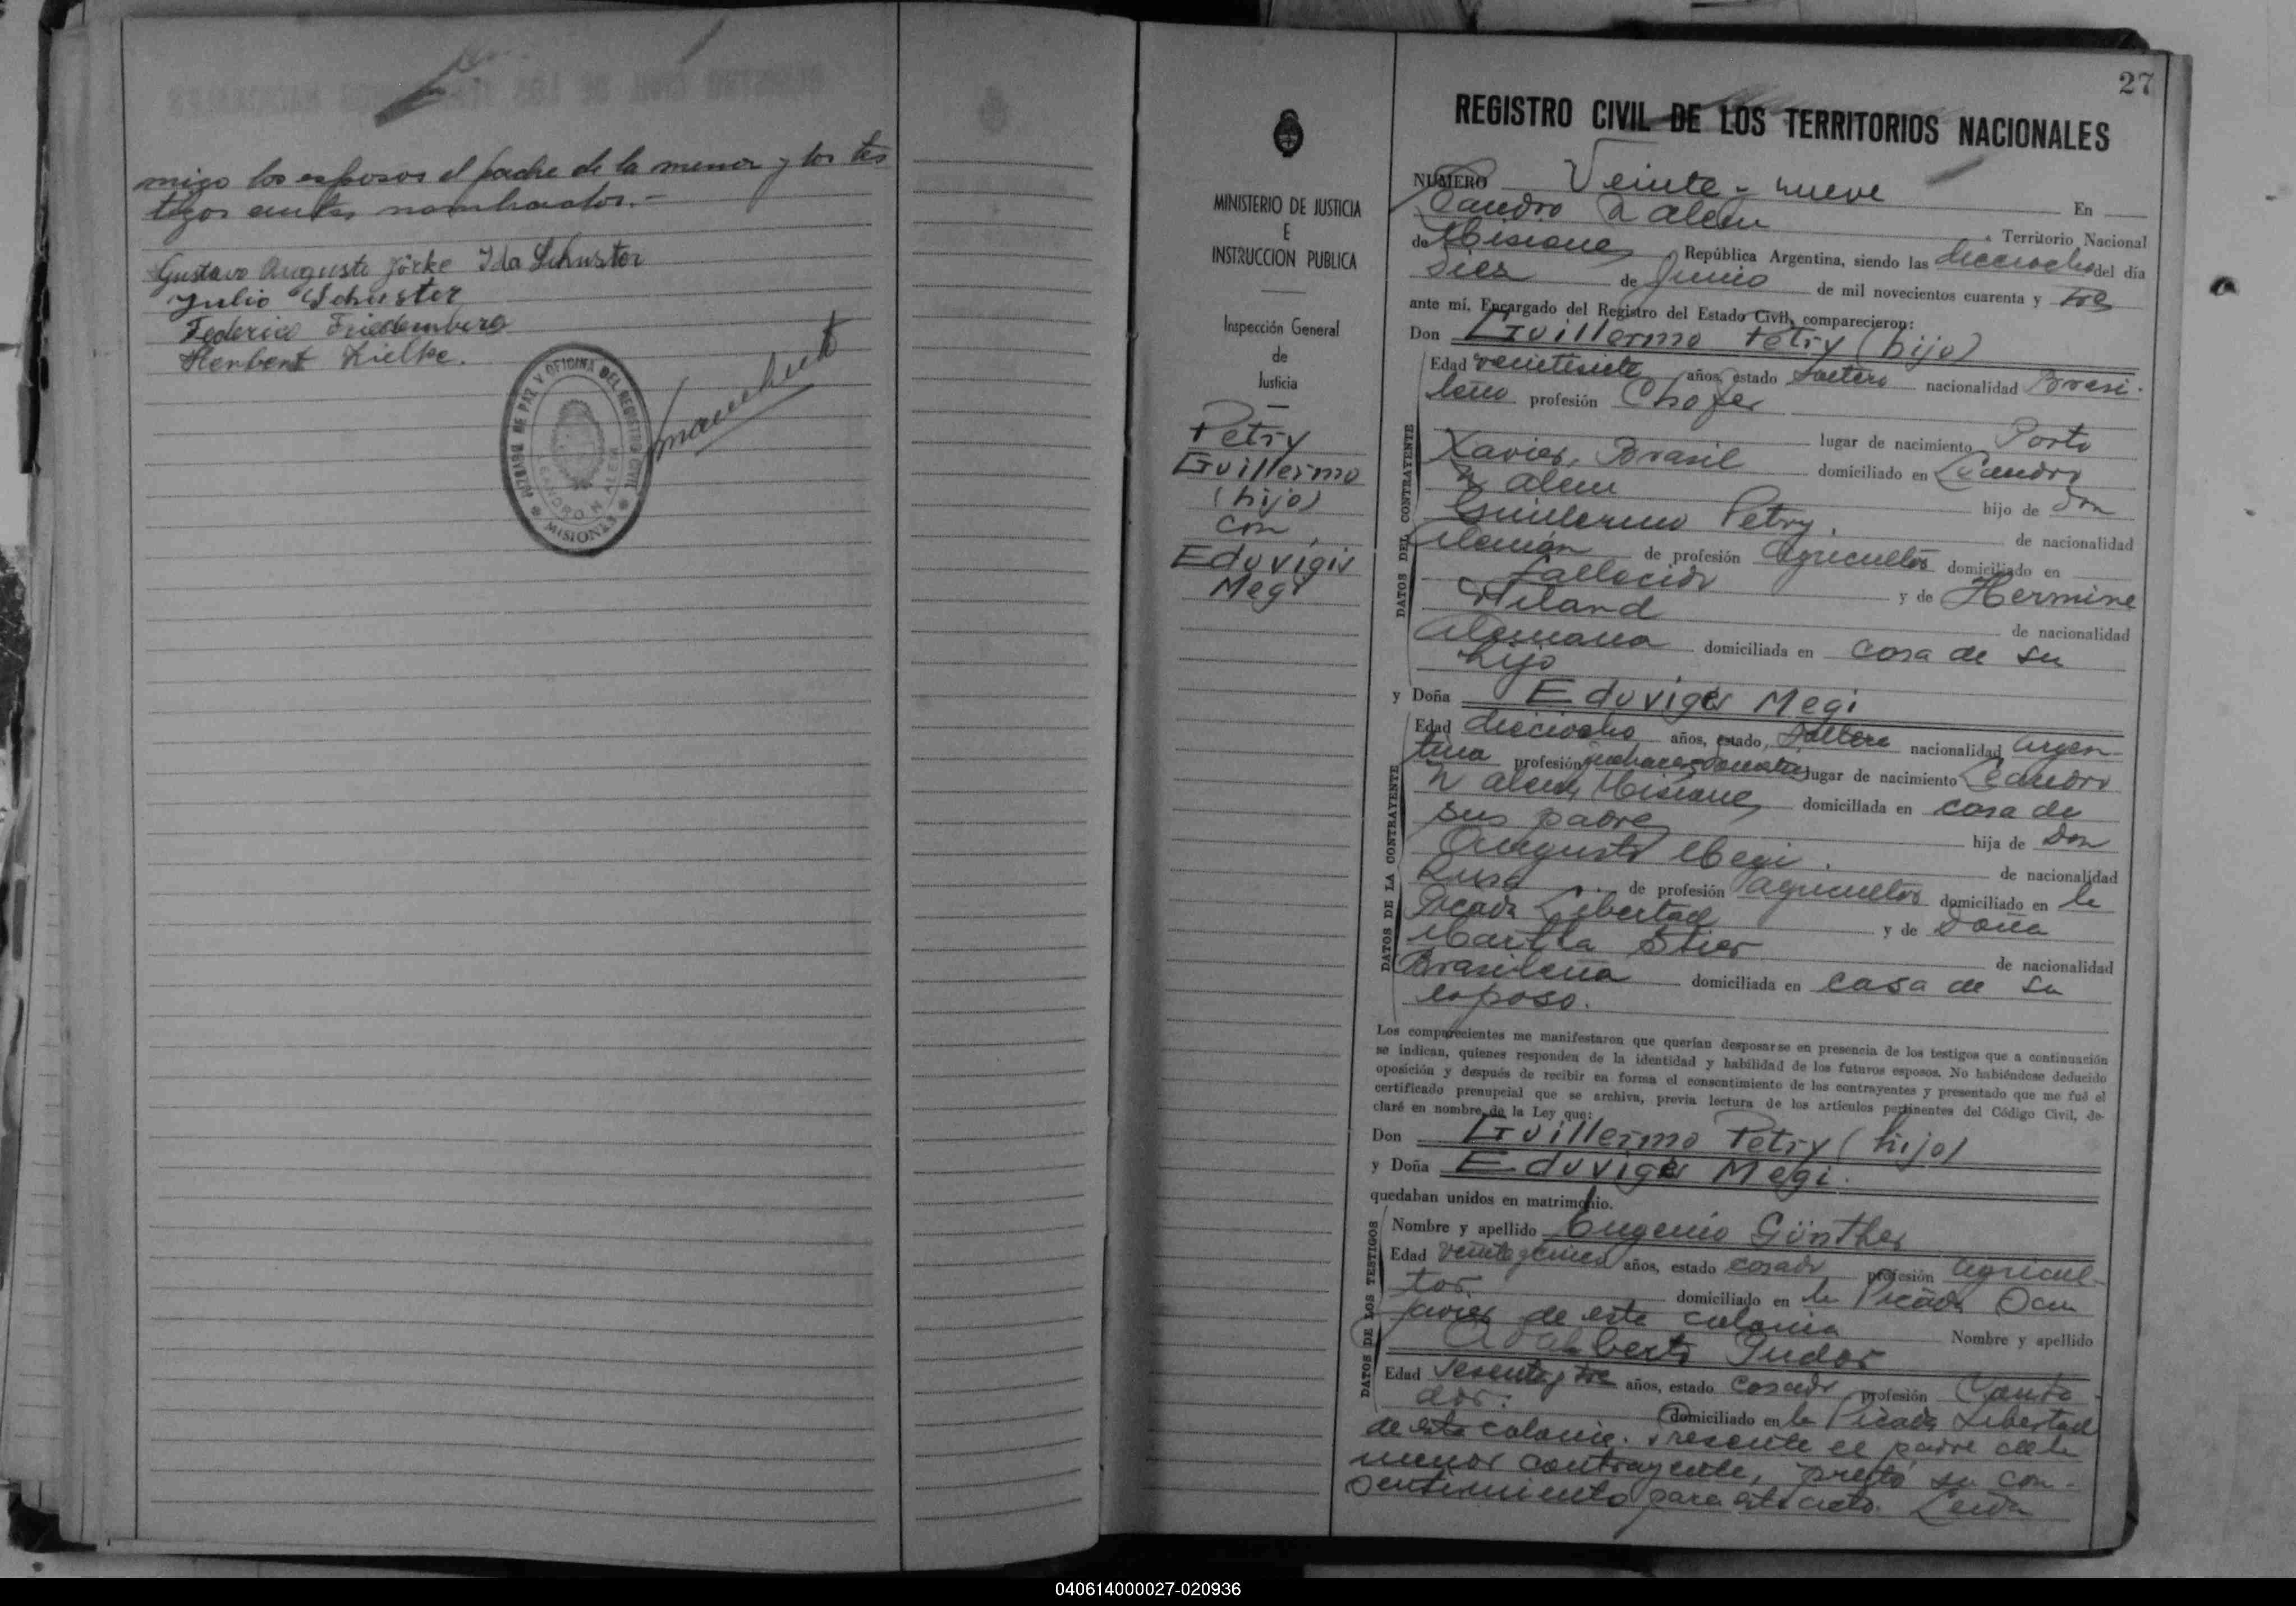 migo los esposos el padre de la menor y los tes
tigos antes nombrados.-
Gustavo Augusto Jörke Ida Schuster
Julio Schuster
Federico Friedemberg
Herbert Kielke.
JUZGADO DE PAZ Y OFICINA DEL REGISTRO CIVIL
LEANDRO N. ALEM
* MISIONES *
27
REGISTRO CIVIL DE LOS TERRITORIOS NACIONALES
MINISTERIO DE JUSTICIA
E
INSTRUCCION PUBLICA
Inspección General
de
Justicia
Petry
Guillermo
(hijo)
con
Eduvigis
Megi
NUMERO Veinte y nueve En
Leandro N Alem , Territorio Nacional
de Misiones República Argentina, siendo las dieciocho del día
diez de Junio de mil novecientos cuarenta y tres
ante mí, Encargado del Registro del Estado Civil, comparecieron:
Don Guillermo Petry (hijo)
DATOS DEL CONTRAYENTE
Edad veintisiete años, estado soltero nacionalidad Brasi-
leño profesión Chofer
lugar de nacimiento Porto
Xavier, Brasil domiciliado en Leandro
N Alem hijo de Don
Guillermo Petry. de nacionalidad
Alemán de profesión agricultor domiciliado en
fallecido y de Hermine
Hiland de nacionalidad
Alemana domiciliada en casa de su
hijo
y Doña Eduvigis Megi
DATOS DE LA CONTRAYENTE
Edad dieciocho años, estado, soltera nacionalidad argen-
tina profesión quehaceres domésticos lugar de nacimiento Leandro
N Alem, Misiones domiciliada en casa de
sus padres hija de Don
Augusto Megi. de nacionalidad
Rusa de profesión agricultor domiciliado en la
Picada Libertad y de Doña
Martha Stier de nacionalidad
Brasileña domiciliada en casa de su
esposo.
Los comparecientes me manifestaron que querían desposarse en presencia de los testigos que a continuación
se indican, quienes responden de la identidad y habilidad de los futuros esposos. No habiéndose deducido
oposición y después de recibir en forma el consentimiento de los contrayentes y presentado que me fué el
certificado prenupcial que se archiva, previa lectura de los artículos pertinentes del Código Civil, de-
claré en nombre de la Ley que:
Don Guillermo Petry (hijo)
y Doña Eduvigis Megi.
quedaban unidos en matrimonio.
DATOS DE LOS TESTIGOS
Nombre y apellido Eugenio Günther
Edad veinte y cinco años, estado casado profesión agricul-
tor. domiciliado en la Picada
de esta colonia Nombre y apellido
Adalberto Pudor
Edad sesenta y tres años, estado casado profesión Conta-
dor. domiciliado en la Picada Libertad
de esta colonia. Presente el padre de la
menor contrayente, prestó su con-
sentimiento para este acto. Leida
040614000027-020936